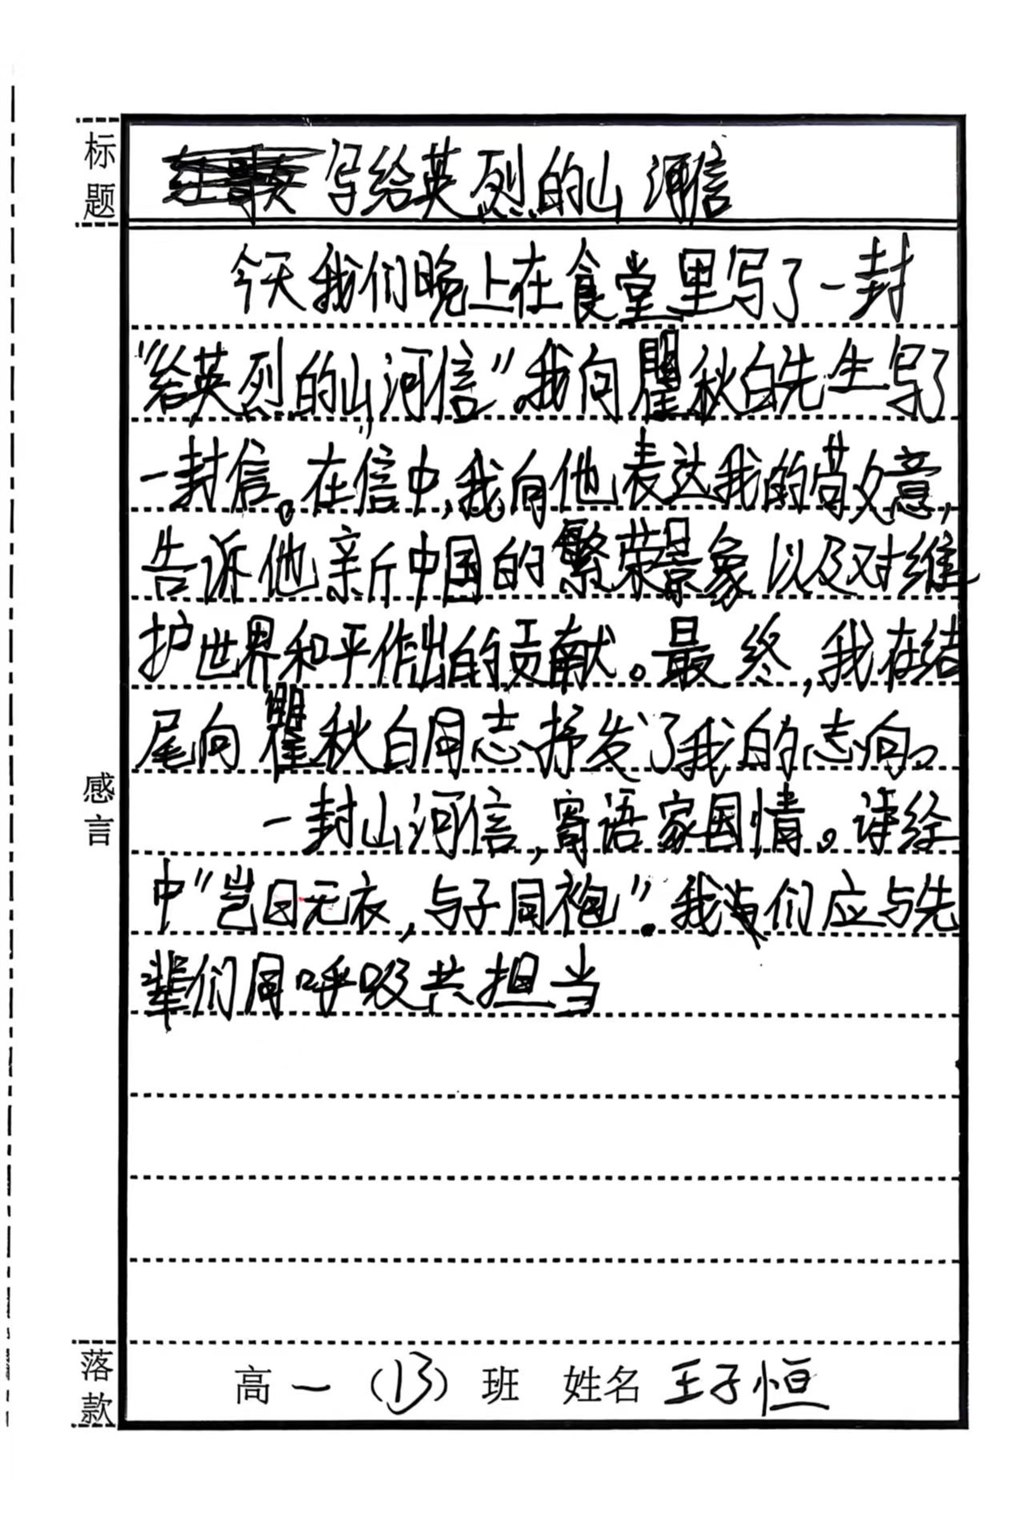 标题
写给英烈的山河信
今天我们晚上在食堂里写了一封
“给英烈的山河信”。我向瞿秋白先生写了
一封信。在信中,我向他表达我的敬意,
告诉他新中国的繁荣景象以及对维
护世界和平作出的贡献。最终,我在结
尾向瞿秋白同志抒发了我的志向。
感言
一封山河信,寄语家国情。诗经
中“岂曰无衣,与子同袍”.我们应与先
辈们同呼吸共担当
落款
高一(13)班 姓名 王子恒